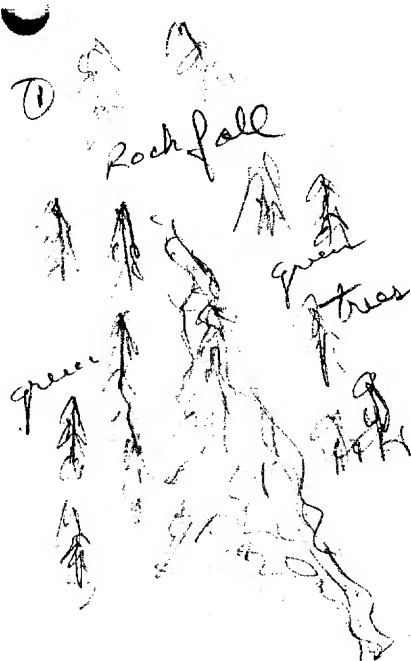 ①
Rock fall
green
trees
green